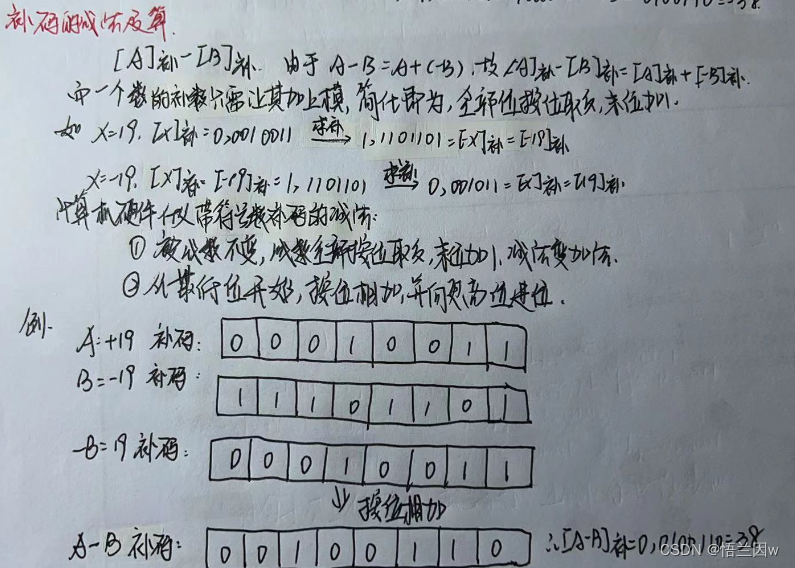 0100110=38
补码的减法运算.
[A]补-[B]补. 由于 A-B=A+(-B), 故[A]补-[B]补=[A]补+[-B]补.
而一个数的补数只需让其加上模, 简化即为, 全部位按位取反, 末位加1.
如 X=19. [X]补=0,0010011 求补→ 1,1101101=[-X]补=[-19]补
X=-19. [X]补=[-19]补=1,1101101 求补→ 0,001011=[-X]补=[19]补.
计算机硬件 带符号数补码的减法:
① 被减数不变, 减数全部按位取反, 末位加1, 减法变加法.
② 从最低位开始, 按位相加, 并向更高位进位.
例.
A=+19 补码: 0 0 0 1 0 0 1 1
B=-19 补码: 1 1 1 0 1 1 0 1
-B=19 补码: 0 0 0 1 0 0 1 1
↓ 按位相加
A-B 补码: 0 0 1 0 0 1 1 0 ∴[A-B]补=0,0100110=38
CSDN @悟兰因w